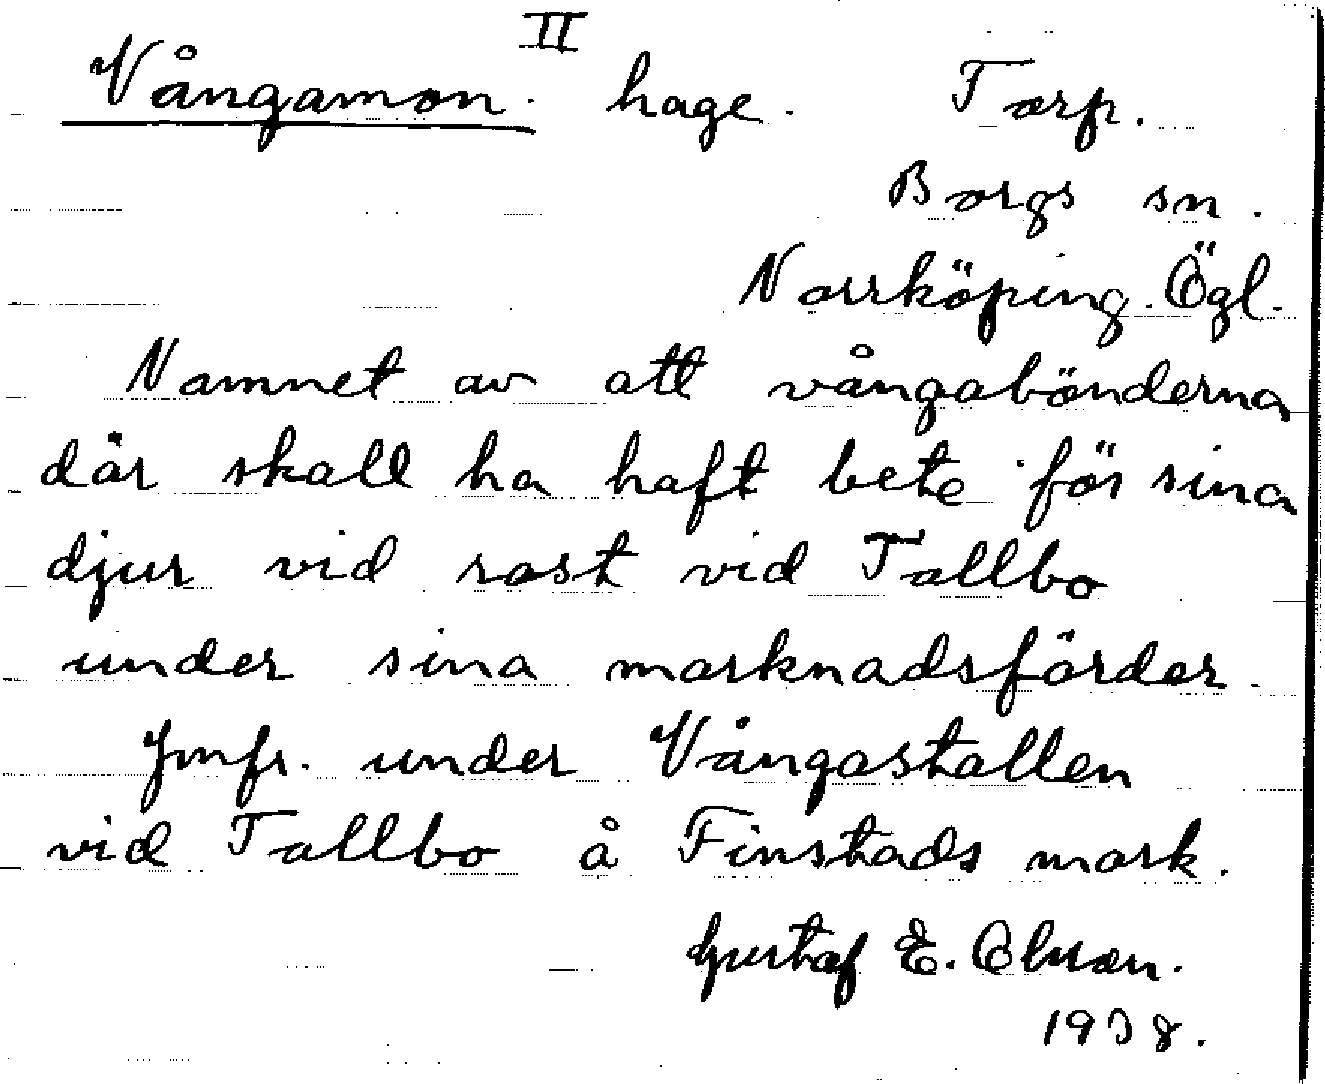 II
Vångamon. hage. Torp.
Borgs sn.
Norrköping. Ögl.
Namnet av att vångabönderna
där skall ha haft bete för sina
djur vid rast vid Tallbo
under sina marknadsfärder.
Jmfr. under Vångastallen
vid Tallbo å Finstads mark.
Gustaf E. Olsson.
1938.